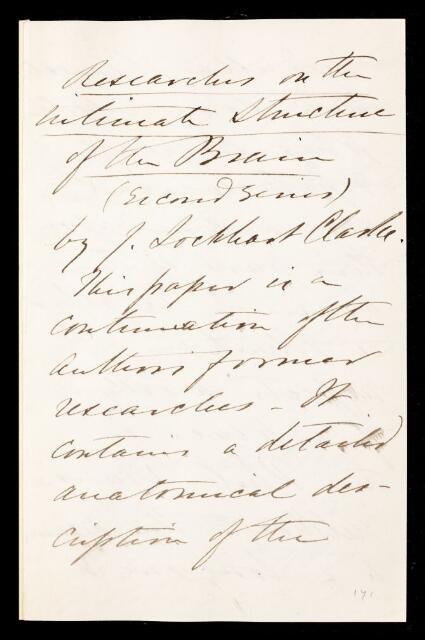 Researches on the
intimate Structure
of the Brain
(Second Series)
by J. Lockhart Clarke.
This paper is a
continuation of the
authors former
researches - It
contains a detailed
anatomical des-
cription of the
171